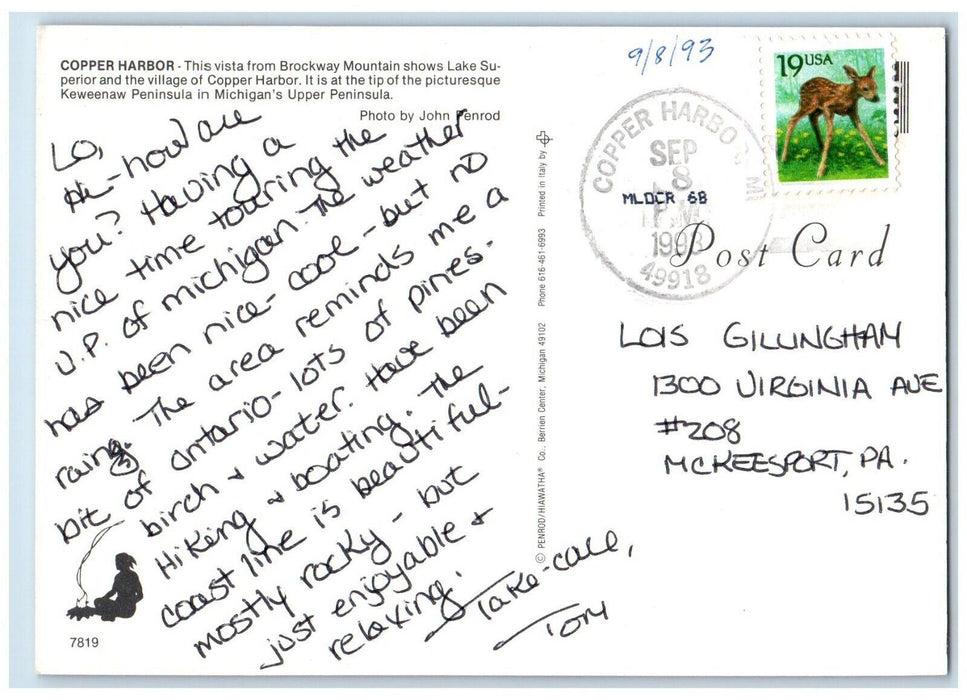 COPPER HARBOR - This vista from Brockway Mountain shows Lake Su-
perior and the village of Copper Harbor. It is at the tip of the picturesque
Keweenaw Peninsula in Michigan's Upper Peninsula.
Photo by John Penrod
Lo,
Hi-how are
you? Having a
nice time touring the
U.P. of michigan. The weather
has been nice-cool-but no
rain. The area reminds me a
bit of Ontario-lots of pines-
birch & water. Have been
Hiking & boating. The
coast line is beautiful-
mostly rocky-but
just enjoyable &
relaxing.
Take-care,
Tom
7819
© PENROD/HIAWATHA® Co., Berrien Center, Michigan 49102 Phone 616-461-6993 Printed in Italy by
9/8/93
19USA
COPPER HARBOR MI
SEP
8
MLDCR 6B
PM
1993
49918
Post Card
LOIS GILLINGHAM
1300 VIRGINIA AVE
#208
MCKEESPORT, PA.
15135